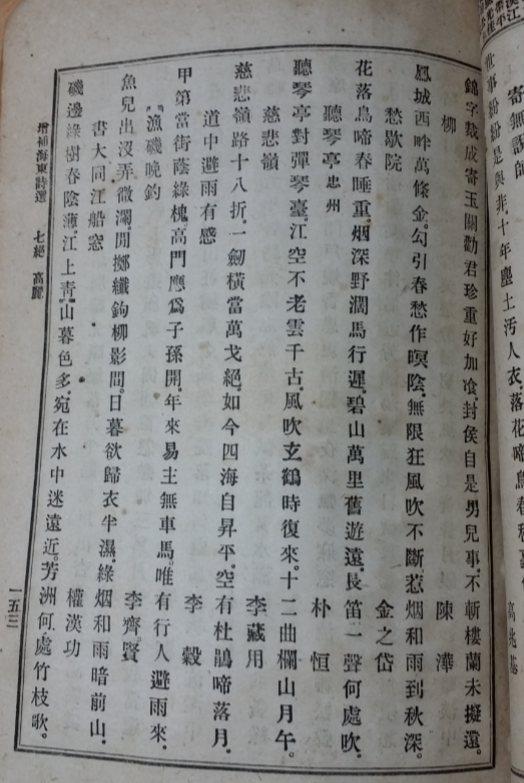 寄無說師
高兆基
世事紛紛是與非,十年塵土汚人衣,落花啼鳥春
錦字裁成寄玉關,勸君珍重好加飡,封侯自是男兒事,不斬樓蘭未擬還.
柳 陳澕
鳳城西畔萬條金,勾引春愁作暝陰,無限狂風吹不斷,惹烟和雨到秋深.
愁歇院 金之岱
花落鳥啼春睡重,烟深野濶馬行遲,碧山萬里舊遊遠,長笛一聲何處吹.
聽琴亭 忠州 朴恒
聽琴亭對彈琴臺,江空不老雲千古,風吹玄鶴時復來,十二曲欄山月午.
慈悲嶺 李藏用
慈悲嶺路十八折,一劒橫當萬戈絕,如今四海自昇平,空有杜鵑啼落月.
道中避雨有感 李穀
甲第當街蔭綠槐,高門應爲子孫開,年來易主無車馬,唯有行人避雨來.
漁磯晚釣 李齊賢
魚兒出沒弄微瀾,閒擲纖鉤柳影間,日暮欲歸衣半濕,綠烟和雨暗前山.
書大同江船窓 權漢功
磯邊綠樹春陰薄,江上靑山暮色多,宛在水中迷遠近,芳洲何處竹枝歌.
增補海東詩選 七絕 高麗 一五三